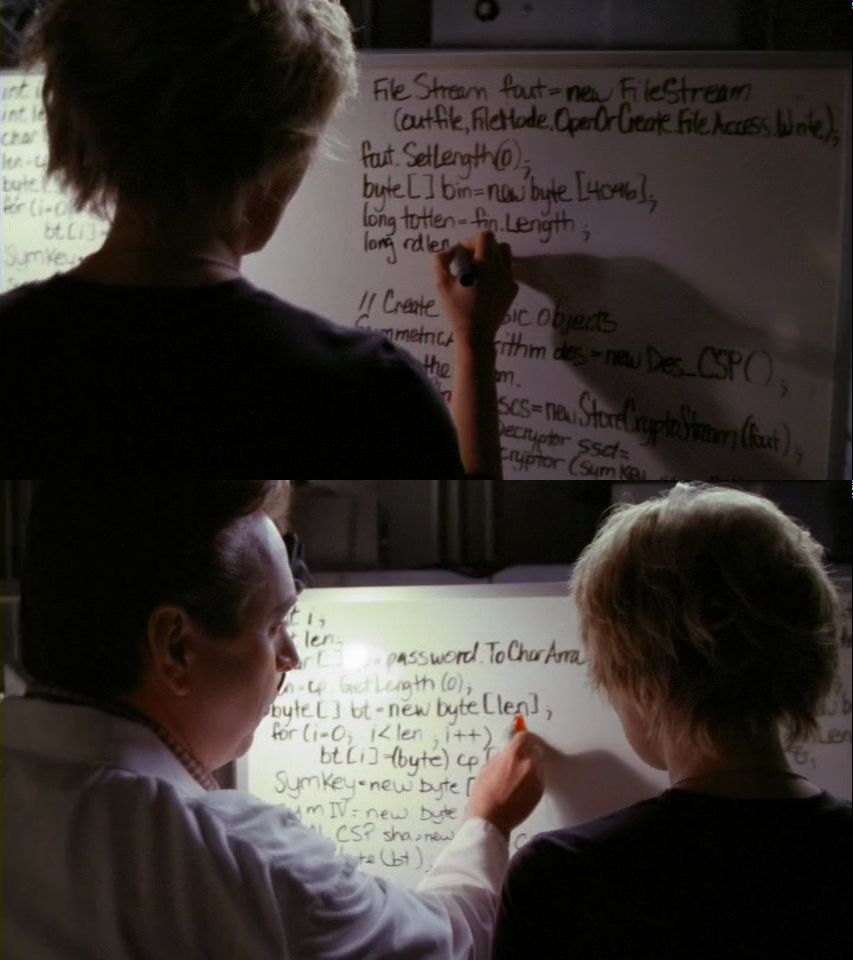 int
int le
char
len=cp
byte[
for (i=0
bt[i]=
Symkey=
FileStream fout=new FileStream
(outfile,FileMode.OpenOrCreate.FileAccess.Write);
fout.SetLength(0);
byte[] bin=new byte [4096];
long totlen=fin.Length ;
long rdlen
// Create
sic Objects
Symmetric
rithm des =new Des_CSP();
the
m.
scs=new StoreCryptoStream(fout);
Decryptor ssd=
cryptor (symkey
t i;
t len;
ar[] = password.ToCharArra
n=cp.GetLength(0);
byte[] bt=new byte[len];
for (i=0; i<len ;i++)
bt[i]=(byte) cp
Symkey=new byte [
ym IV= new byte
CSP sha=new
te(bt).